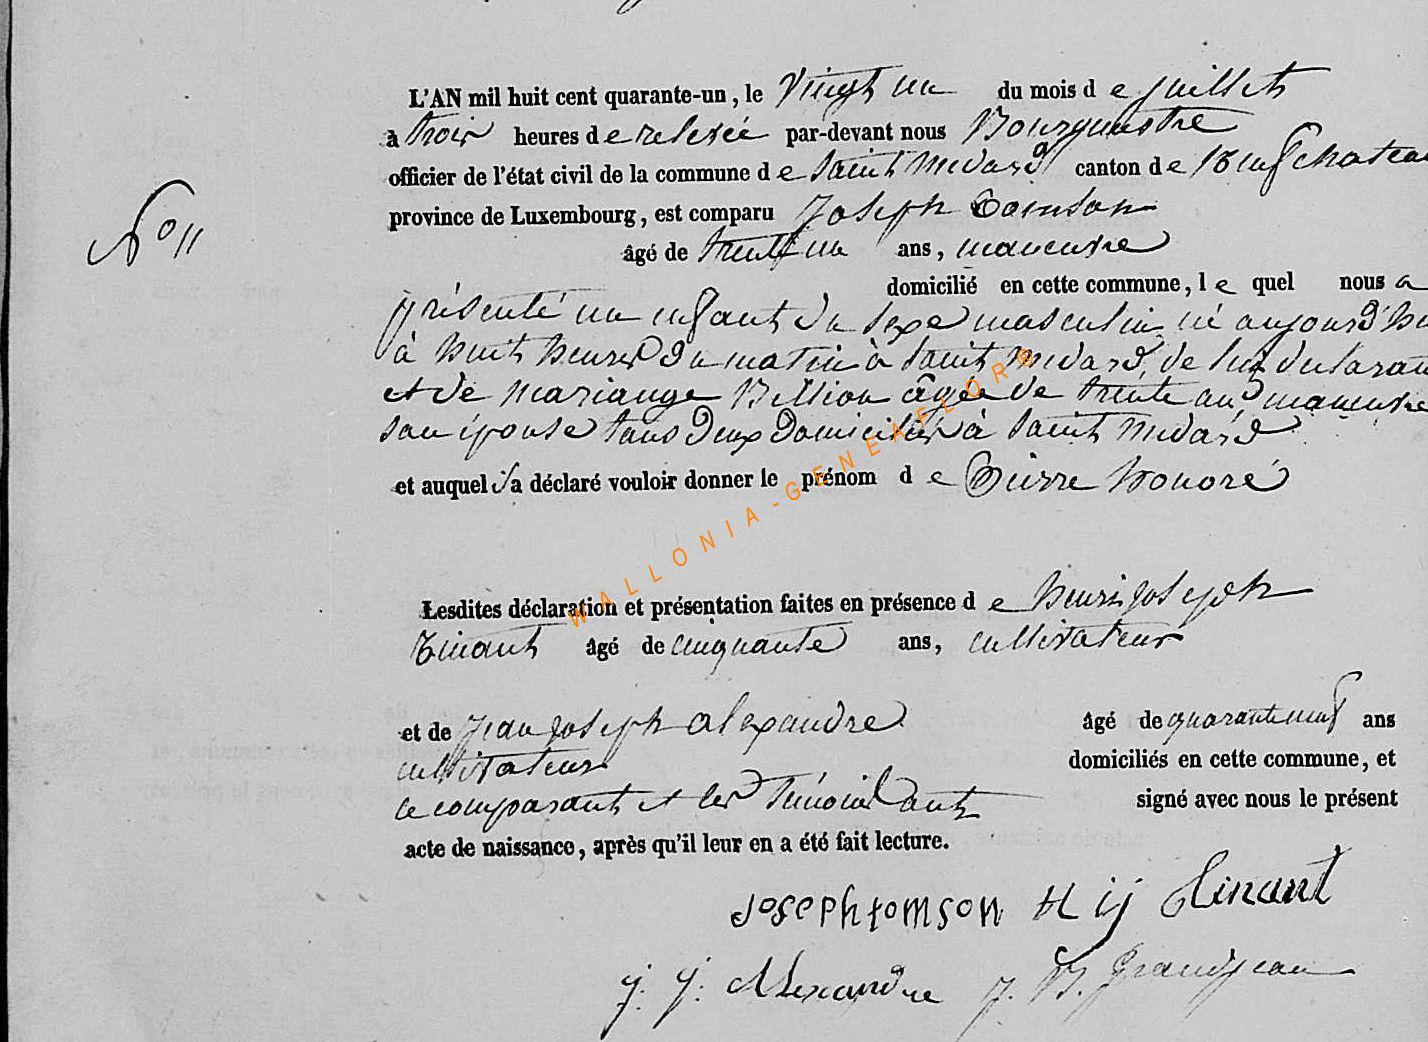 L'AN mil huit cent quarante-un, le vingt un du mois de juillet
à trois heures de relevée par-devant nous Bourgmestre
officier de l'état civil de la commune de Saint Médard canton de Neufchateau
province de Luxembourg, est comparu Joseph Tomson
No 11
âgé de trente un ans, manœuvre
domicilié en cette commune, le quel nous a
présenté un enfant du sexe masculin né aujourd'hu
à huit heures du matin à Saint Médard, de lui déclarant
et de Mariange Billion âgée de trente ans, manœuvre
son épouse tous deux domiciliés à Saint Médard
et auquel il a déclaré vouloir donner le prénom de Pierre honoré
WALLONIA-GENEAFLORE
Lesdites déclaration et présentation faites en présence de henri joseph
Tinant âgé de cinquante ans, cultivateur
et de jean joseph alexandre âgé de quarante neuf ans
cultivateur domiciliés en cette commune, et
le comparant et les témoins ont signé avec nous le présent
acte de naissance, après qu'il leur en a été fait lecture.
Joseph tomson H ij tinant
j. j. Alexandre j. B. Grandjean